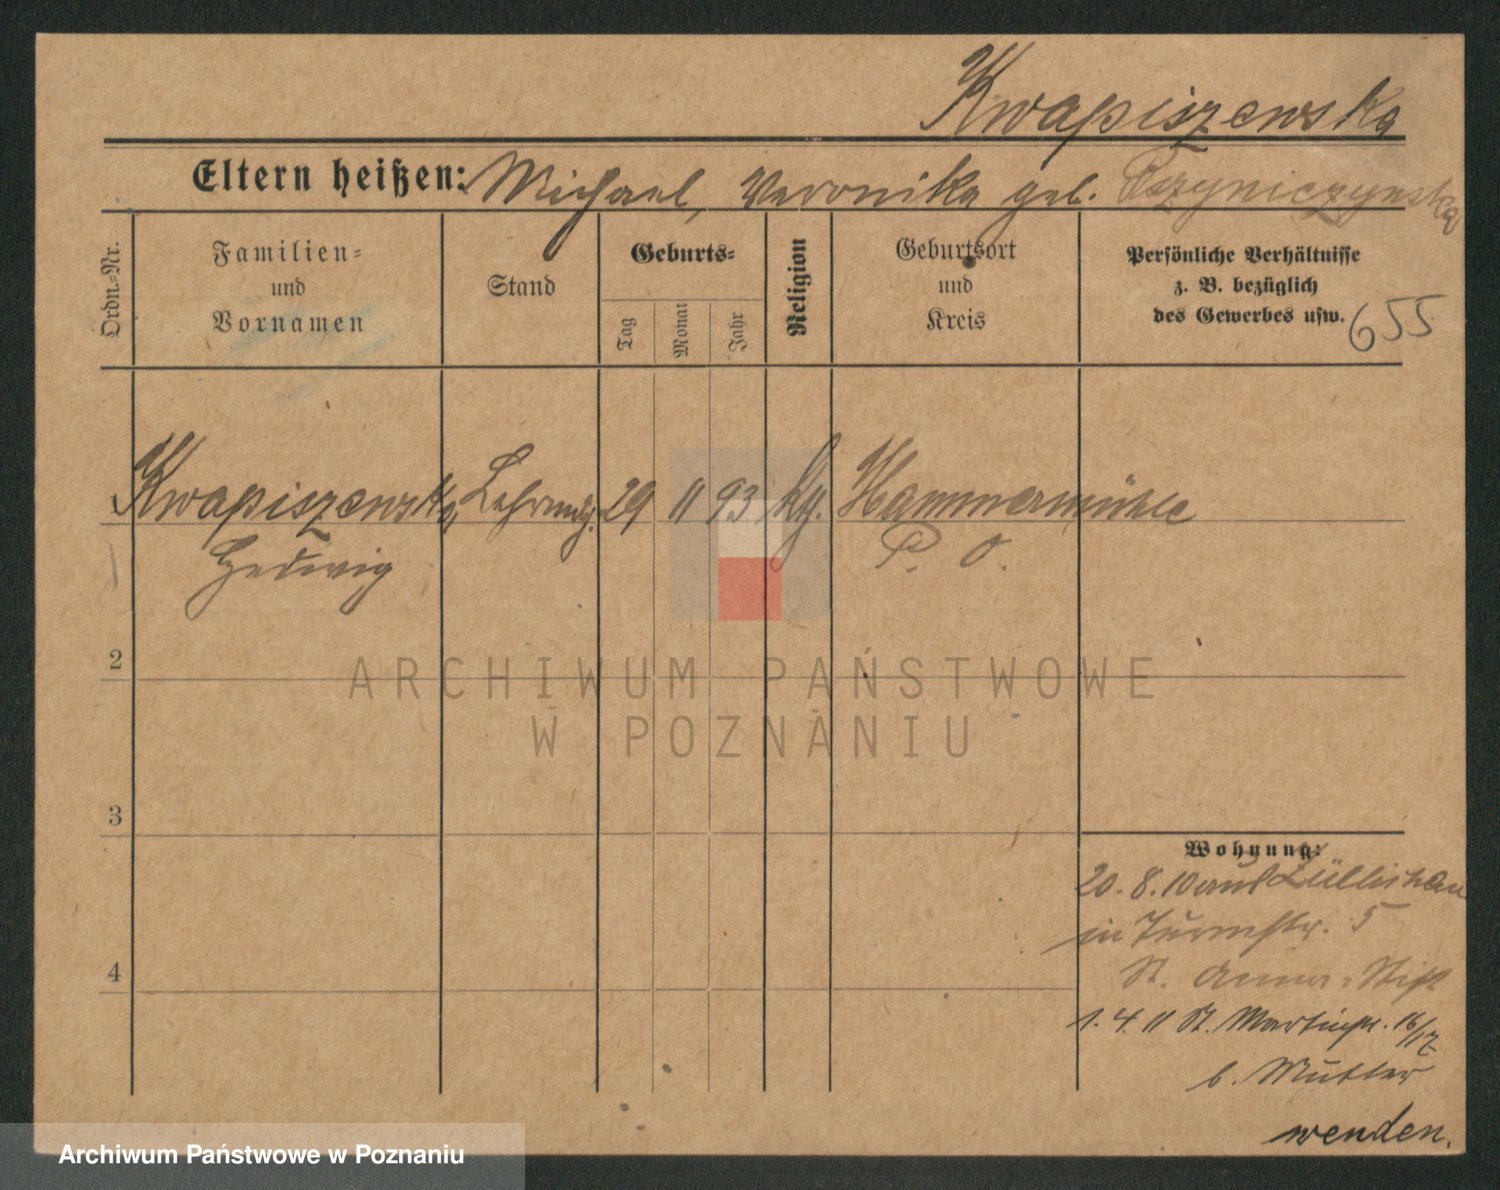 Kwapiszewska
Eltern heißen: Michael, Veronika geb.
Ordn.-Nr.
Familien-
und
Vornamen
Stand
Geburts-
Tag
Monat
Jahr
Religion
Geburtsort
und
Kreis
Persönliche Verhältnisse
z. B. bezüglich
des Gewerbes usw.
655
1 Kwapiszewska, 29 11 93 Hammermühle
Hedwig P. O.
2
3
4
Wohnung:
20. 8. 10 aus Züllichau
in Turmstr. 5
St. Anna-Stift
1. 4. 11 St. Martinstr. 16/17
b. Mutter
wenden.
ARCHIWUM PAŃSTWOWE
W POZNANIU
Archiwum Państwowe w Poznaniu